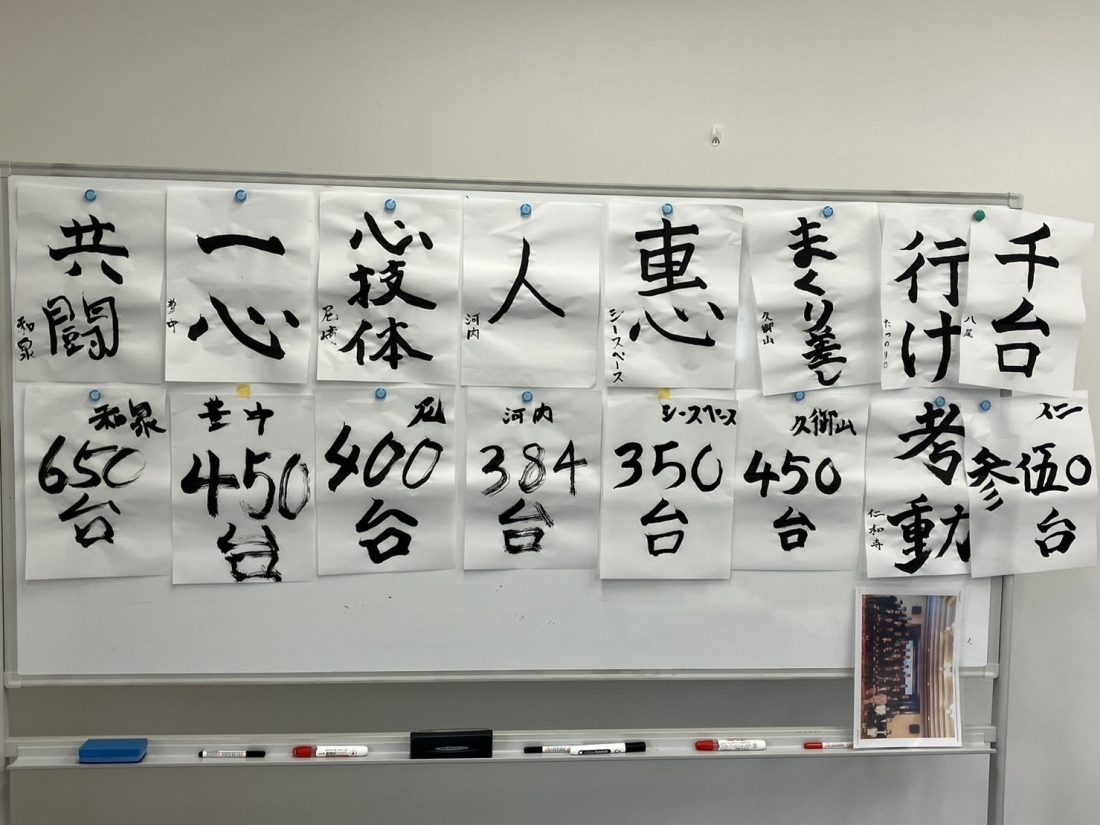 共闘
和泉
一心
豊中
心技体
尼崎
人
河内
恵
シースペース
まくり差し
久御山
行け
たつの90
千台
八尾
和泉
650
台
豊中
450
台
尼
400
台
河内
384
台
シースペース
350
台
久御山
450
台
考動
仁和寺
仁
参伍0
台